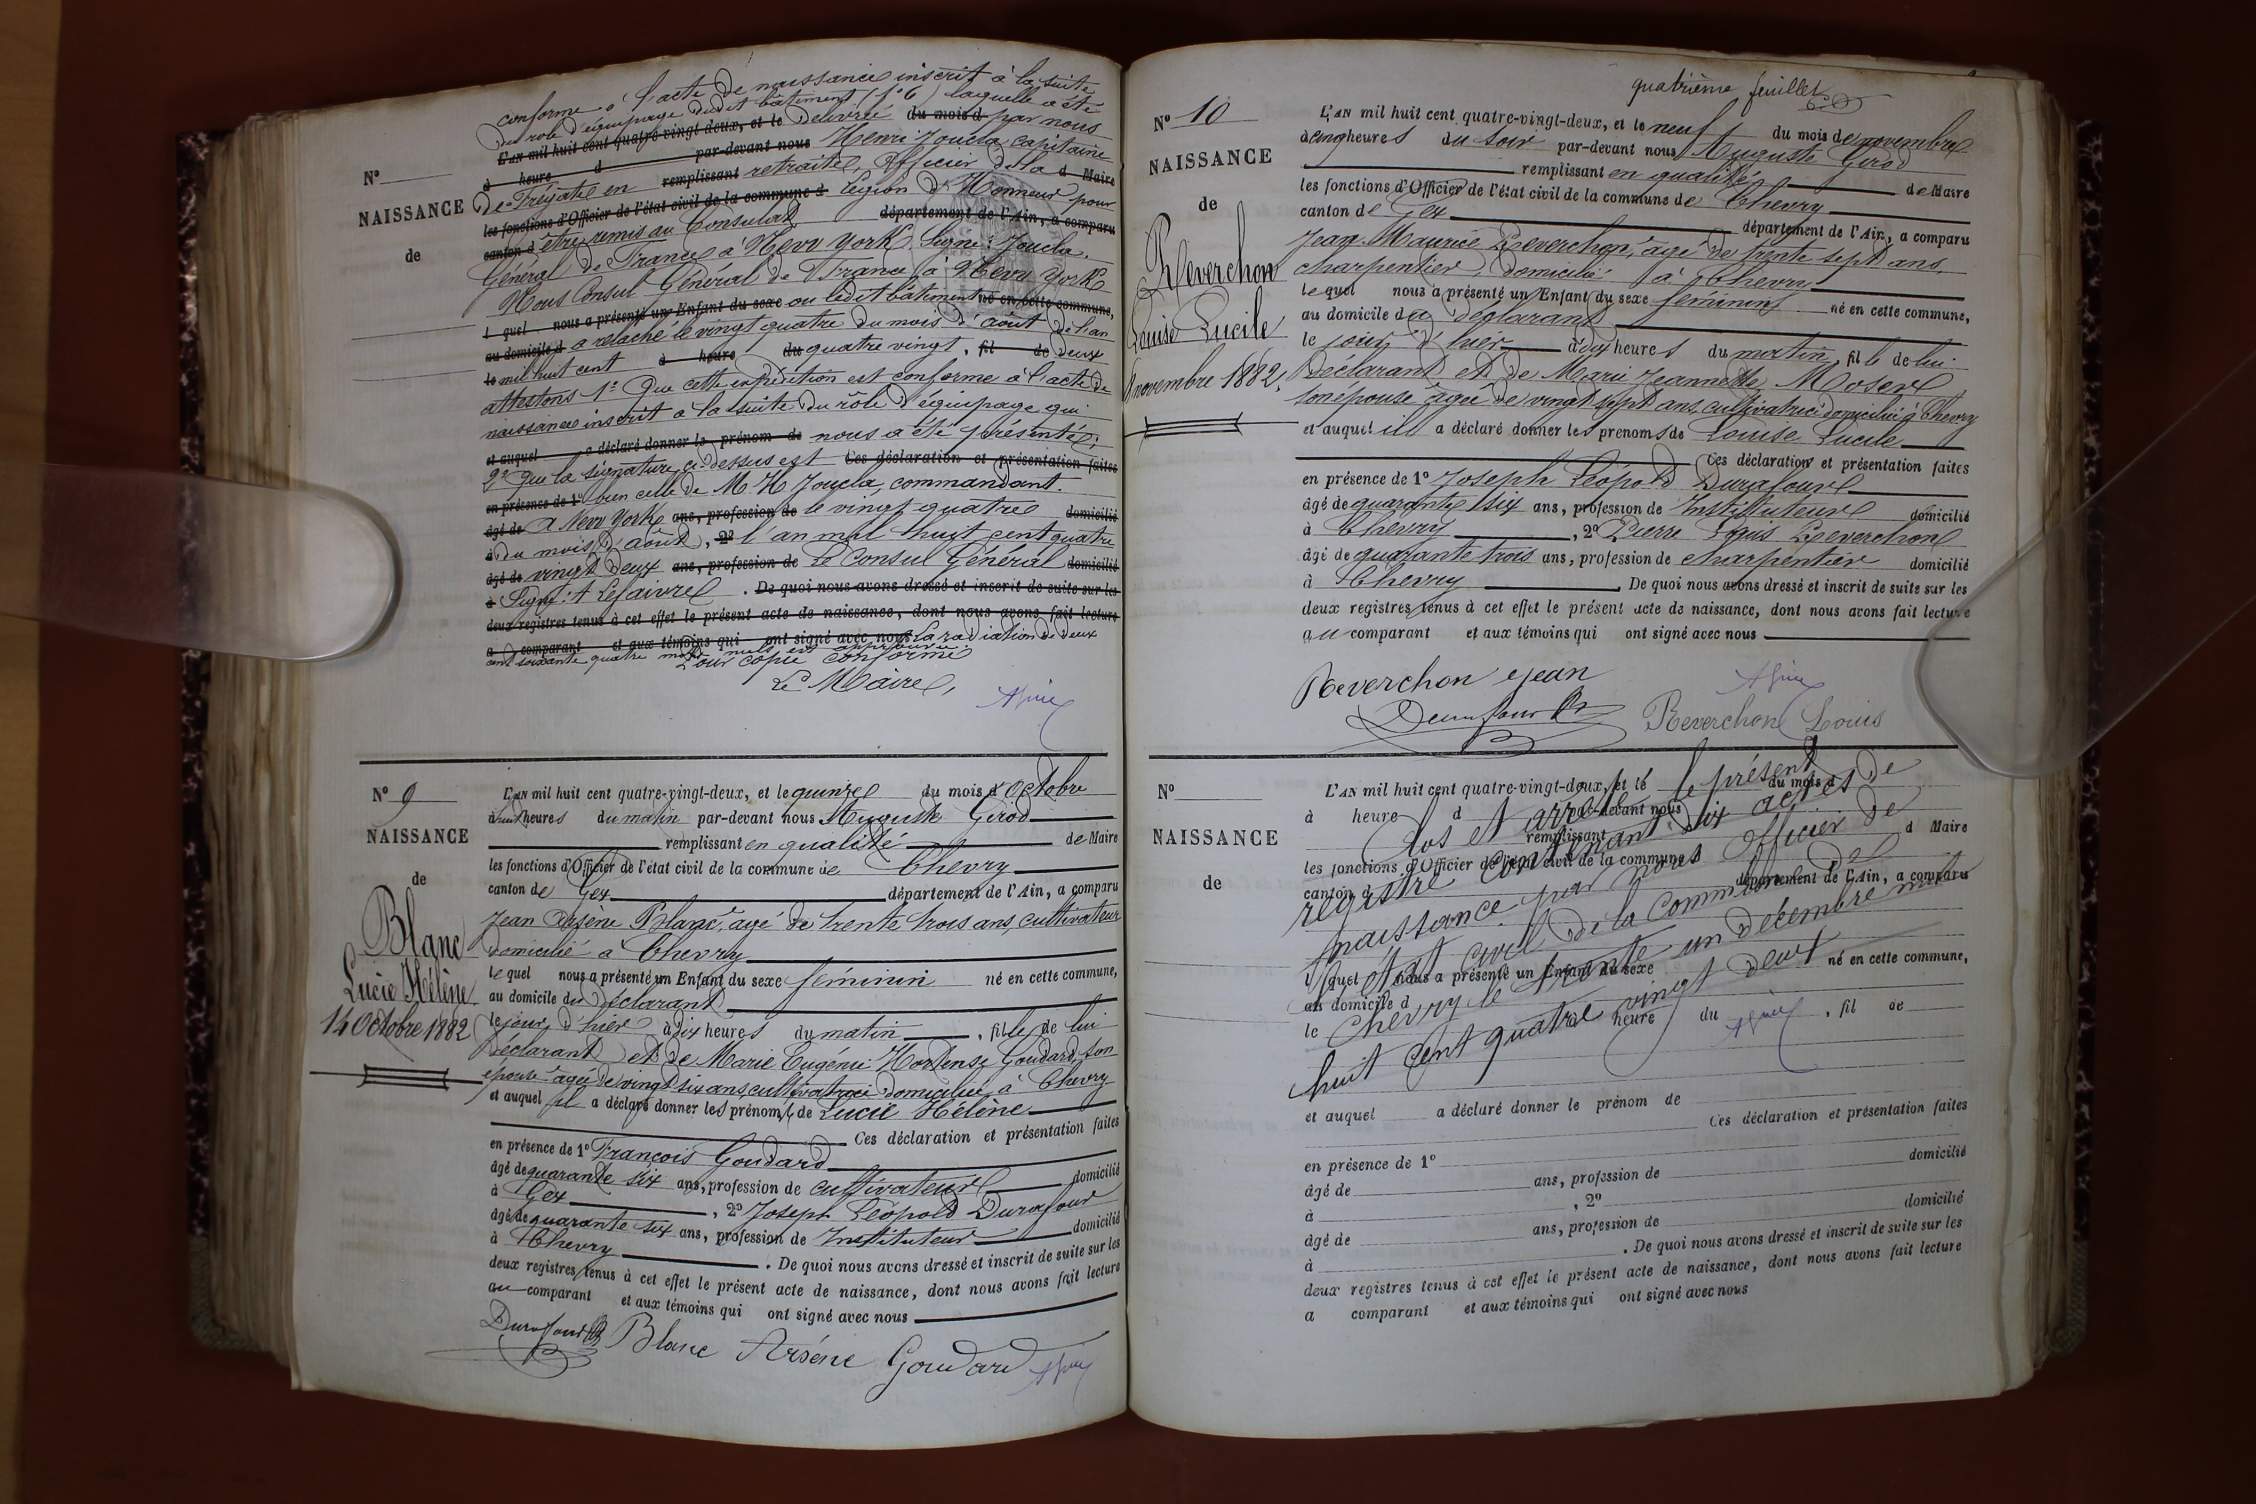 conforme à l'acte de naissance inscrit à la suite
du rôle d'équipage dudit bâtiment (1°6) laquelle a été
L'AN mil huit cent quatre-vingt-deux, et le délivrée du mois d par nous
à heure d par-devant nous Henri Joucla, capitaine
N°
de Frégate en remplissant retraite, Officier de la d Maire
NAISSANCE
les fonctions d'Officier de l'état civil de la commune d Légion d'Honneur pour
canton d être remis au Consulat département de l'Ain, a comparu
de
Général de France à New York. Signé: Joucla.
Nous Consul Général de France à New York
l quel nous a présenté un Enfant du sexe ou ledit bâtiment né en cette commune,
au domicile d a relaché le vingt quatre du mois d'août de l'an
le mil huit cent à heure du quatre vingt, fil de deux
attestons 1° Que cette expédition est conforme à l'acte de
naissance inscrit à la suite du rôle d'équipage qui
et auquel a déclaré donner le prénom de nous a été présenté;
2° Que la signature ci-dessus est Ces déclaration et présentation faites
en présence de 1° bien celle de M H Joucla, commandant.
âgé de A New York ans, profession de le vingt quatre domicilié
à du mois d'août, 2° l'an mil huit cent quatre
âgé de vingt deux ans, profession de Le Consul Général domicilié
à Signé: A Lefaivre . De quoi nous avons dressé et inscrit de suite sur les
deux registres tenus à cet effet le présent acte de naissance, dont nous avons fait lecture
a comparant et aux témoins qui ont signé avec nous La radiation de deux
cent soixante quatre mots nuls est approuvée.
Pour copie conforme
Le Maire,
N° 9
L'AN mil huit cent quatre-vingt-deux, et le quinze du mois d'Octobre
à huit heures du matin par-devant nous Auguste Girod
NAISSANCE
remplissant en qualité de Maire
les fonctions d'Officier de l'état civil de la commune de Chevry
de
canton de Gex département de l'Ain, a comparu
Jean Arsène Blanc, agé de trente trois ans, cultivateur
Blanc
domicilié à Chevry
Lucie Hélène
le quel nous a présenté un Enfant du sexe féminin né en cette commune,
au domicile du déclarant
14 Octobre 1882
le jour d'hier à dix heures du matin, fille de lui
déclarant et de Marie Eugénie Hortense Goudard, son
épouse agée de vingt six ans, cultivatrice domiciliée à Chevry
et auquel il a déclaré donner les prénoms de Lucie Hélène
Ces déclaration et présentation faites
en présence de 1° François Goudard
âgé de quarante six ans, profession de cultivateur domicilié
à Gex, 2° Joseph Léopold Durafour
âgé de quarante six ans, profession de Instituteur domicilié
à Chevry. De quoi nous avons dressé et inscrit de suite sur les
deux registres tenus à cet effet le présent acte de naissance, dont nous avons fait lecture
au comparant et aux témoins qui ont signé avec nous
Durafour Blanc Arsène Goudard
quatrième feuillet
N° 10
L'AN mil huit cent quatre-vingt-deux, et le neuf du mois de novembre
à cinq heures du soir par-devant nous Auguste Girod
NAISSANCE
remplissant en qualité de Maire
les fonctions d'Officier de l'état civil de la commune de Chevry
de
canton de Gex département de l'Ain, a comparu
Jean Maurice Reverchon, agé de trente sept ans,
Reverchon
charpentier, domicilié à Chevry
le quel nous a présenté un Enfant du sexe féminin né en cette commune,
Louise Lucile
au domicile du déclarant
le jour d'hier à dix heures du matin, fille de lui
8 novembre 1882
déclarant et de Marie Jeannette Moser
son épouse agée de vingt sept ans, cultivatrice domiciliée à Chevry
et auquel il a déclaré donner les prénoms de Louise Lucile
Ces déclaration et présentation faites
en présence de 1° Joseph Léopold Durafour
âgé de quarante six ans, profession de Instituteur domicilié
à Chevry, 2° Pierre Louis Reverchon
âgé de quarante trois ans, profession de charpentier domicilié
à Chevry. De quoi nous avons dressé et inscrit de suite sur les
deux registres tenus à cet effet le présent acte de naissance, dont nous avons fait lecture
au comparant et aux témoins qui ont signé avec nous
Reverchon Jean
Durafour
Reverchon Louis
N°
L'AN mil huit cent quatre-vingt-deux, et le du mois d
à heure d par-devant nous
NAISSANCE
remplissant d Maire
les fonctions d'Officier de l'état civil de la commune d
de
canton d département de l'Ain, a comparu
Clos et arrêté le présent
registre contenant dix actes de
naissance par nous Officier de
l'état civil de la commune de
Chevry le trente un décembre mil
huit cent quatre vingt deux
l quel nous a présenté un Enfant du sexe né en cette commune,
au domicile d
le heure du , fil de
et auquel a déclaré donner le prénom de
Ces déclaration et présentation faites
en présence de 1°
âgé de ans, profession de domicilié
à , 2°
âgé de ans, profession de domicilié
à . De quoi nous avons dressé et inscrit de suite sur les
deux registres tenus à cet effet le présent acte de naissance, dont nous avons fait lecture
a comparant et aux témoins qui ont signé avec nous